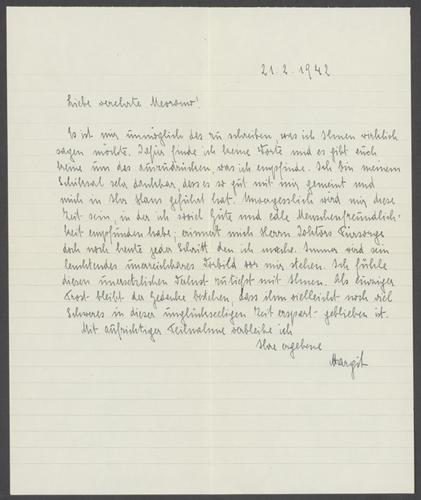 21.2.1942
Liebe verehrte Mevrouw!
Es ist mir unmöglich das zu schreiben, was ich Ihnen wirklich
sagen möchte. Dafür finde ich keine Worte und es gibt auch
keine um das auszudrücken, was ich empfinde. Ich bin meinem
Schicksal sehr dankbar, dass es so gut mit mir gemeint und
mich in Ihr Haus geführt hat. Unvergesslich wird mir diese
Zeit sein, in der ich soviel Güte und edle Menschenfreundlich-
keit empfunden habe; erinnert mich Herrn Doktors Fürsorge
doch noch heute jeder Schritt den ich mache. Immer wird sein
leuchtendes unerreichbares Vorbild vor mir stehen. Ich fühle
diesen unersetzlichen Verlust zutiefst mit Ihnen. Als einziger
Trost bleibt der Gedanke bestehen, dass ihm vielleicht noch viel
Schweres in dieser unglückseeligen Zeit erspart geblieben ist.
Mit aufrichtiger Teilnahme verbleibe ich
Ihre ergebene
Margit